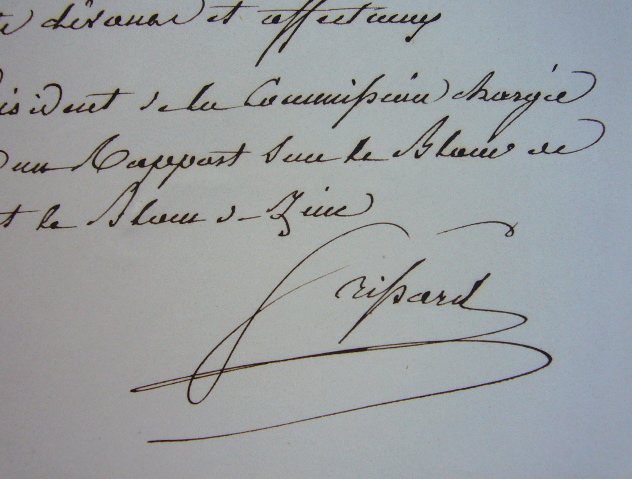 dévoué et affectueux
sident de la Commission chargée
d'un Rapport sur le Blanc de
t le Blanc de Zinc
Grissard